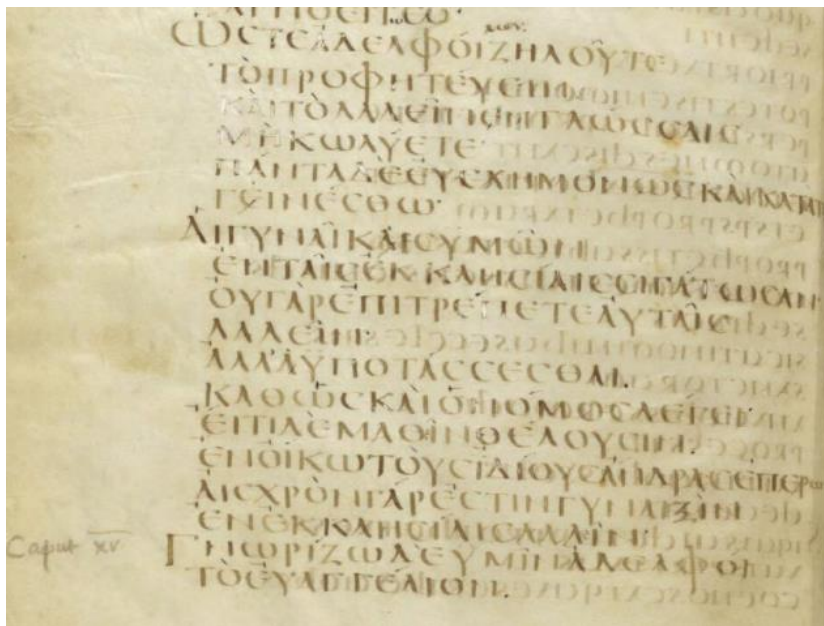 μου:
ὩCΤΕΑΔΕΛΦΟΙΖΗΛΟΥΤΕ
ΤΟΠΡΟΦΗΤΕΥΕΙΝ
ΚΑΙΤΟΛΑΛΕΙΝΕΝΓΛΩCCΑΙC
ΜΗΚΩΛΥΕΤΕ
ΠΑΝΤΑΔΕΕΥCΧΗΜΟΝΩCΚΑΙΚΑΤΑΤΑ
ΓΕΙΝΕCΘΩ
ΑΙΓΥΝΑΙΚΑΙCΥΜΩΝ
ΕΝΤΑΙCΕΚΚΛΗCΙΑΙCCΙΓΑΤΩCΑΝ
ΟΥΓΑΡΕΠΙΤΡΕΠΕΤΕΑΥΤΑΙC
ΛΑΛΕΙΝ
ΑΛΛΑΥΠΟΤΑCCΕCΘΑΙ.
ΚΑΘΩCΚΑΙΟΝΟΜΟCΛΕΓΕΙ
ΕΙΤΙΔΕΜΑΘΙΝΘΕΛΟΥCΙΝ.
ΕΝΟΙΚΩΤΟΥCΙΔΙΟΥCΑΝΔΡΑCΕΠΕΡω
ΑΙCΧΡΟΝΓΑΡΕCΤΙΝΓΥΝΑΙΞΙΝ
ΕΝΕΚΚΛΗCΙΑΙCΛΑΛΙΝ
Caput xv ΓΝΩΡΙΖΩΔΕΥΜΙΝΑΔΕΛΦΟΙ
ΤΟΕΥΑΓΓΕΛΙΟΝ.